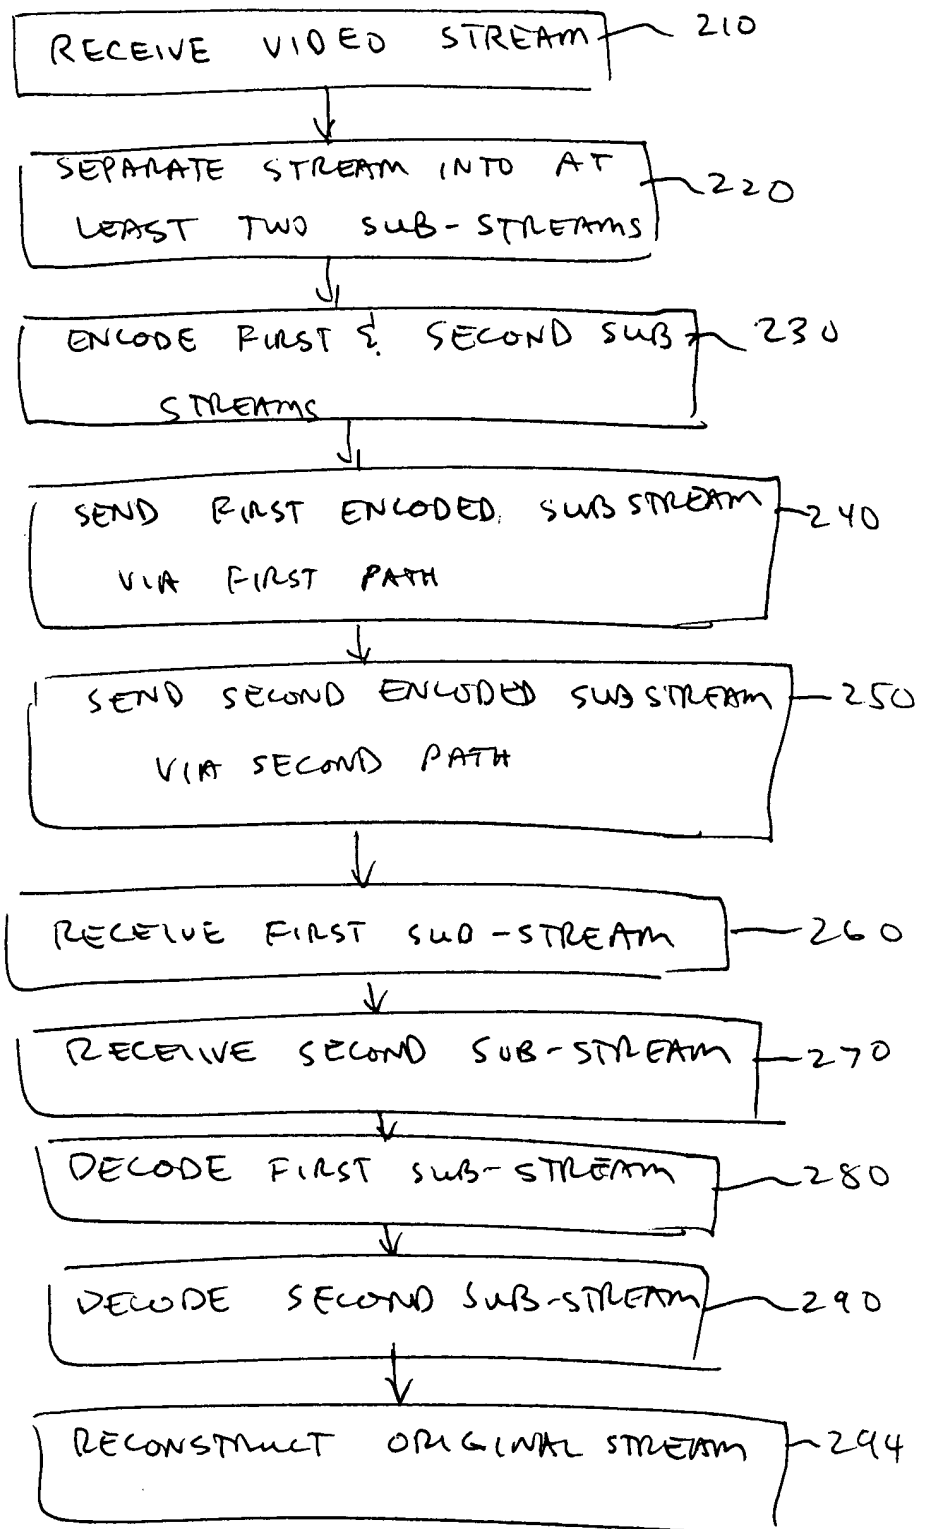 RECEIVE VIDEO STREAM 210
SEPARATE STREAM INTO AT 220
LEAST TWO SUB-STREAMS
ENCODE FIRST & SECOND SUB 230
STREAMS
SEND FIRST ENCODED SUBSTREAM 240
VIA FIRST PATH
SEND SECOND ENCODED SUBSTREAM 250
VIA SECOND PATH
RECEIVE FIRST SUB-STREAM 260
RECEIVE SECOND SUB-STREAM 270
DECODE FIRST SUB-STREAM 280
DECODE SECOND SUB-STREAM 290
RECONSTRUCT ORIGINAL STREAM 294